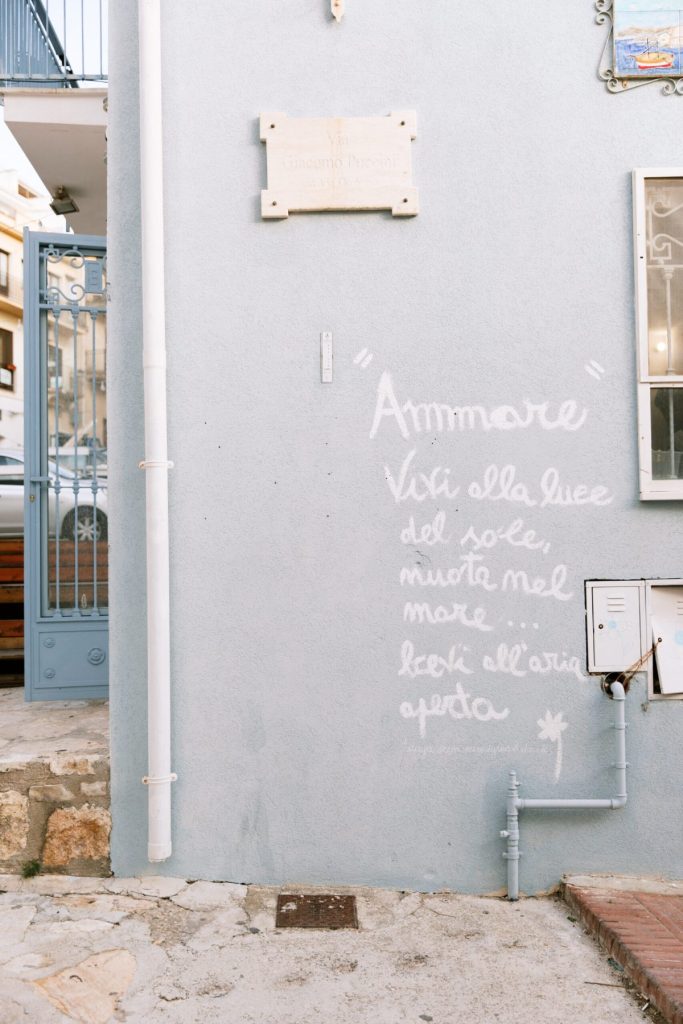 Via
Giacomo Puccini
" Ammare "
Vivi alla luce
del sole,
nuota nel
mare ...
bevi all'aria
aperta